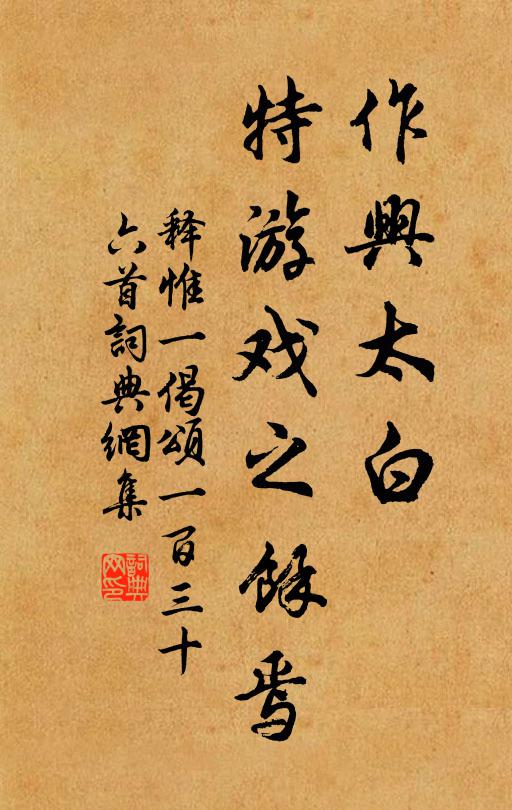 作興太白
特游戏之餘焉
释惟一偈頌一百三十
六首詞典網集
詞典
网印